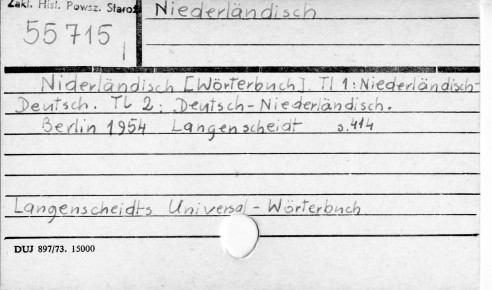 Zakl. Hist. Powsz. Staroż
Niederländisch
55 715
I
Niderländisch [Wörterbuch]. Tl 1: Niederländisch-
Deutsch. Tl 2: Deutsch-Niederländisch.
Berlin 1954 Langenscheidt s.414
Langenscheidts Universal-Wörterbuch
DUJ 897/73. 15000